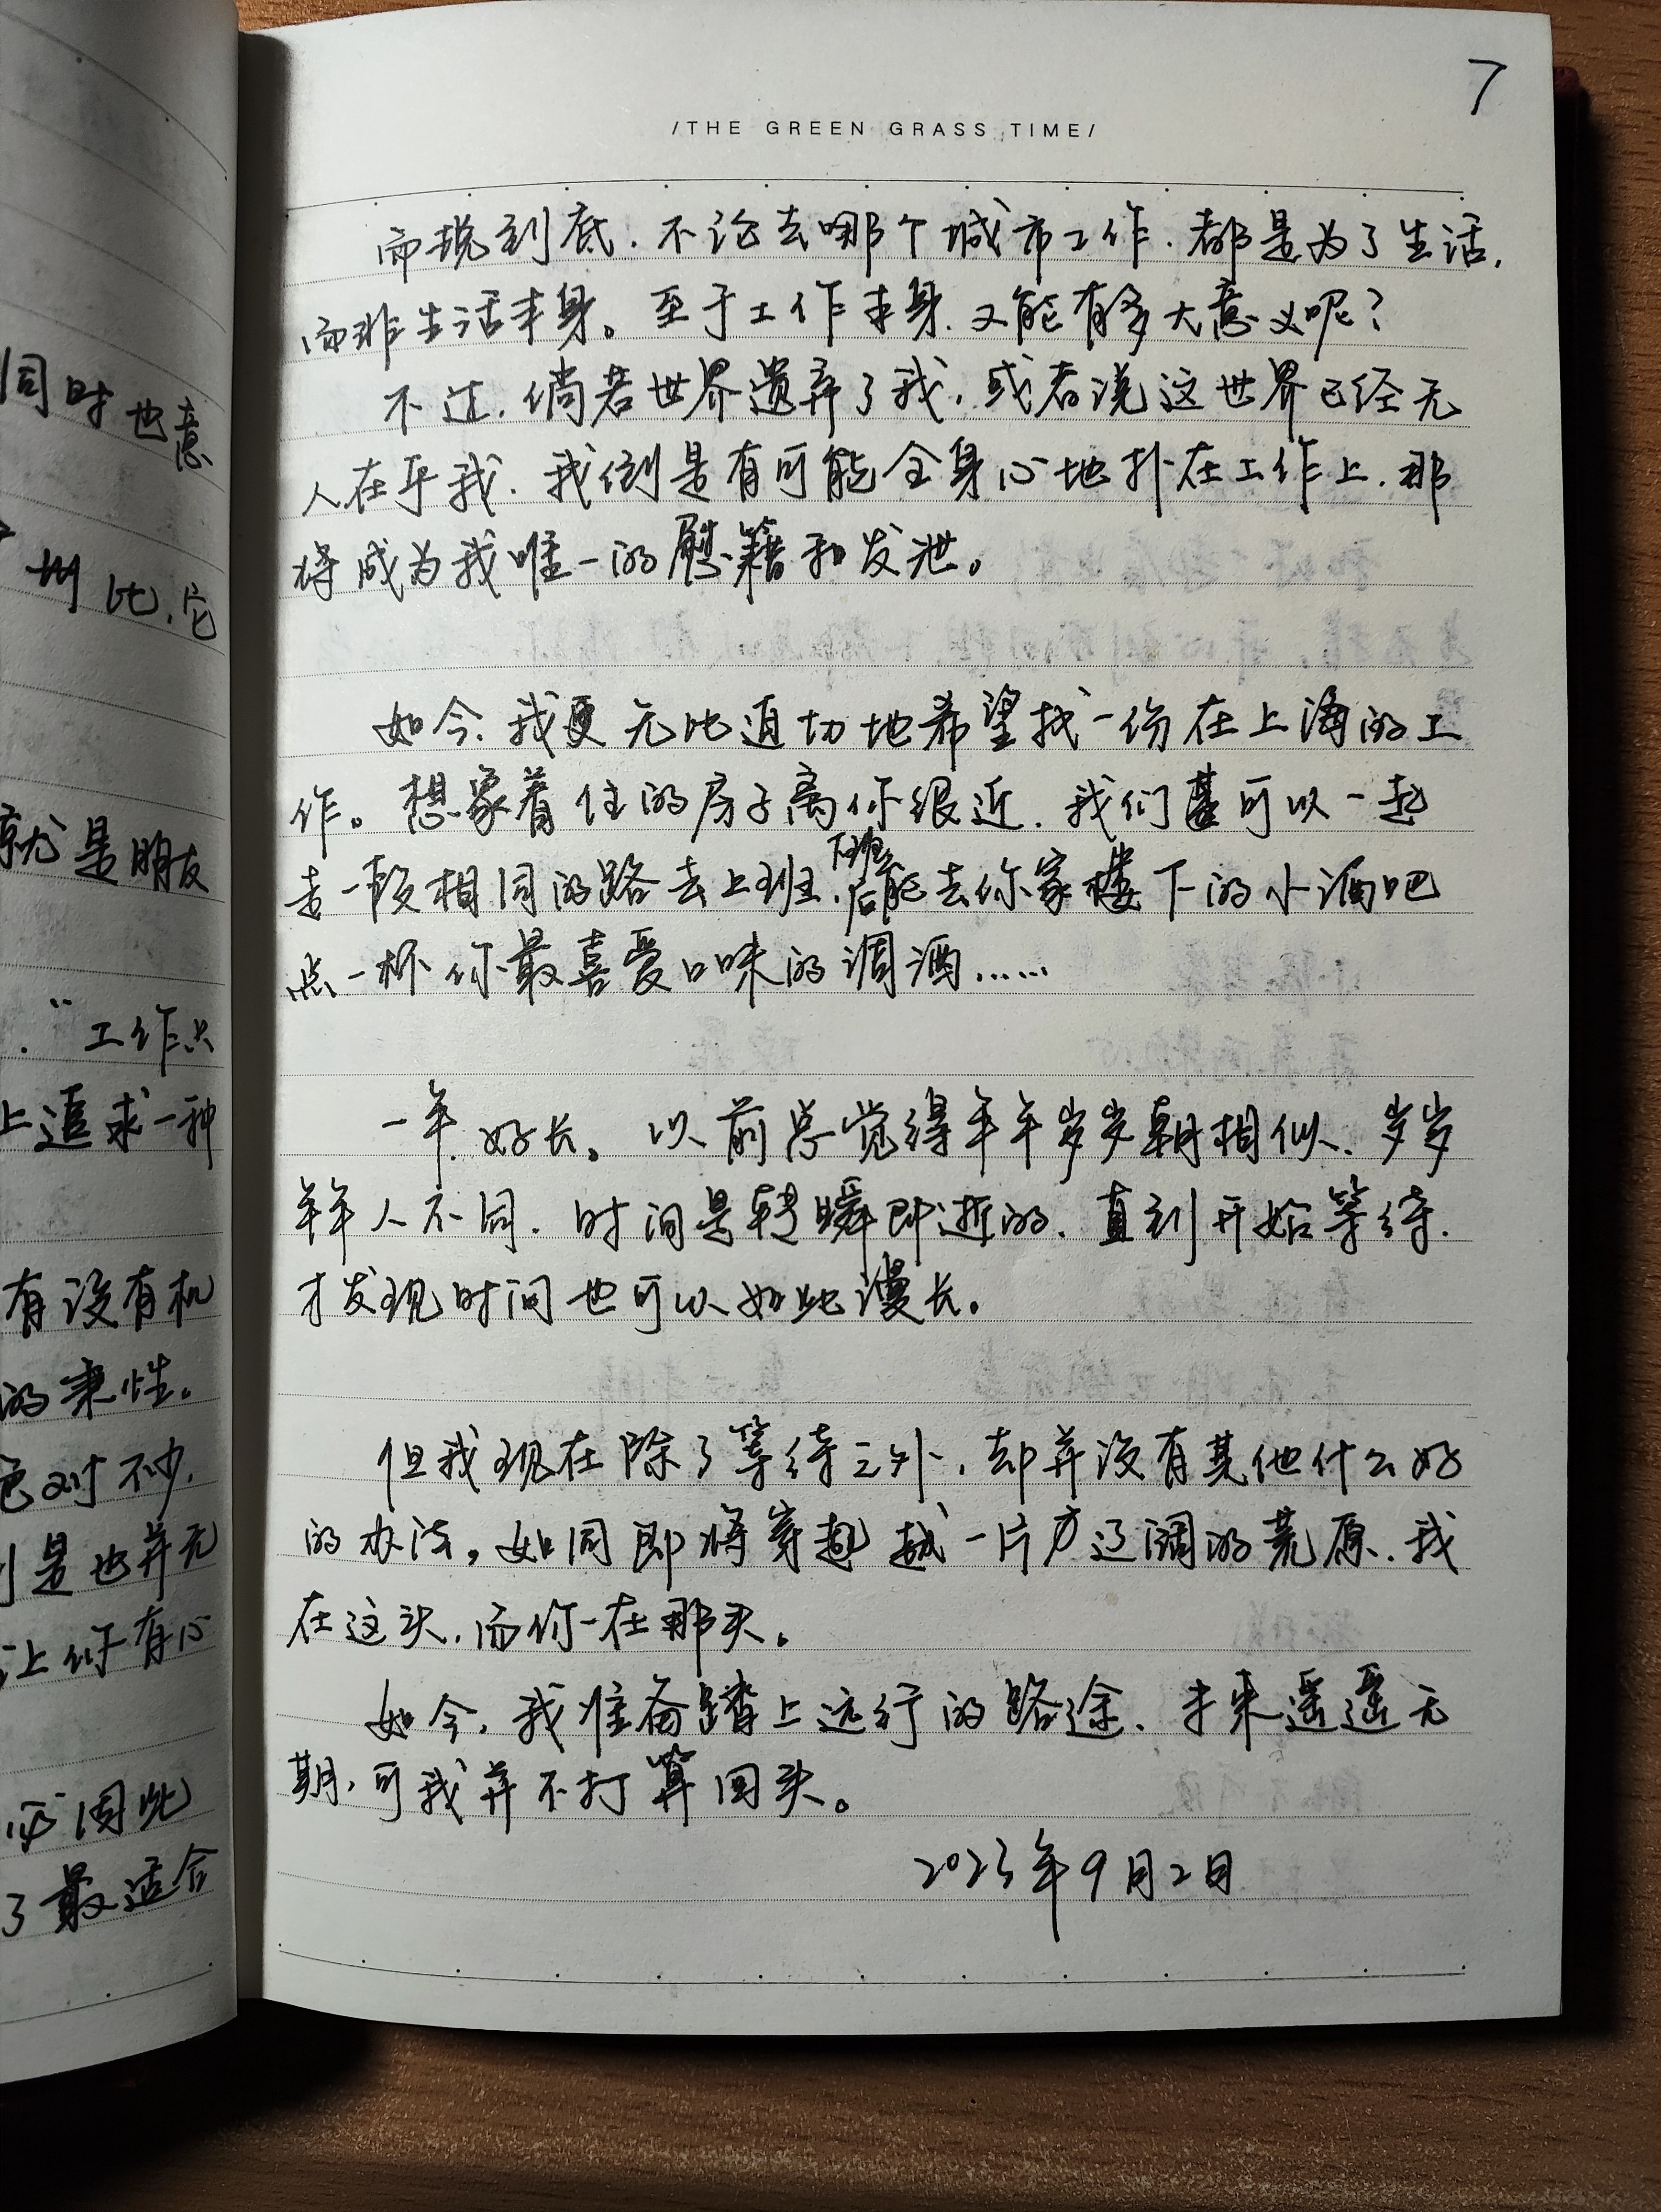 同时也意
州比,它
就是朋友
.“工作只
上追求一种
有没有机
的秉性。
色对不少.
是也并无
让你有心
因此
了最适合
7
/THE GREEN GRASS TIME/
而说到底.不论去哪个城市工作.都是为了生活,
而非生活本身。至于工作本身.又能有多大意义呢?
不过.倘若世界遗弃了我.或者说这世界已经无
人在乎我.我倒是有可能全身心地扑在工作上.那
将成为我唯一的慰籍和发泄。
如今.我更无比迫切地希望找一份在上海的工
作。想象着住的房子离你很近.我们甚可以一起
走一段相同的路去上班.下班后能去你家楼下的小酒吧
点一杯你最喜爱口味的调酒……
一年.好长。以前总觉得年年岁岁朝相似、岁岁
年年人不同.时间是转瞬即逝的.直到开始等待.
才发现时间也可以如此漫长。
但我现在除了等待之外.却并没有其他什么好
的办法。如同即将穿越一片方辽阔的荒原.我
在这头.而你在那头。
如今.我准备踏上远行的路途、未来遥遥无
期,可我并不打算回头。
2023年9月2日